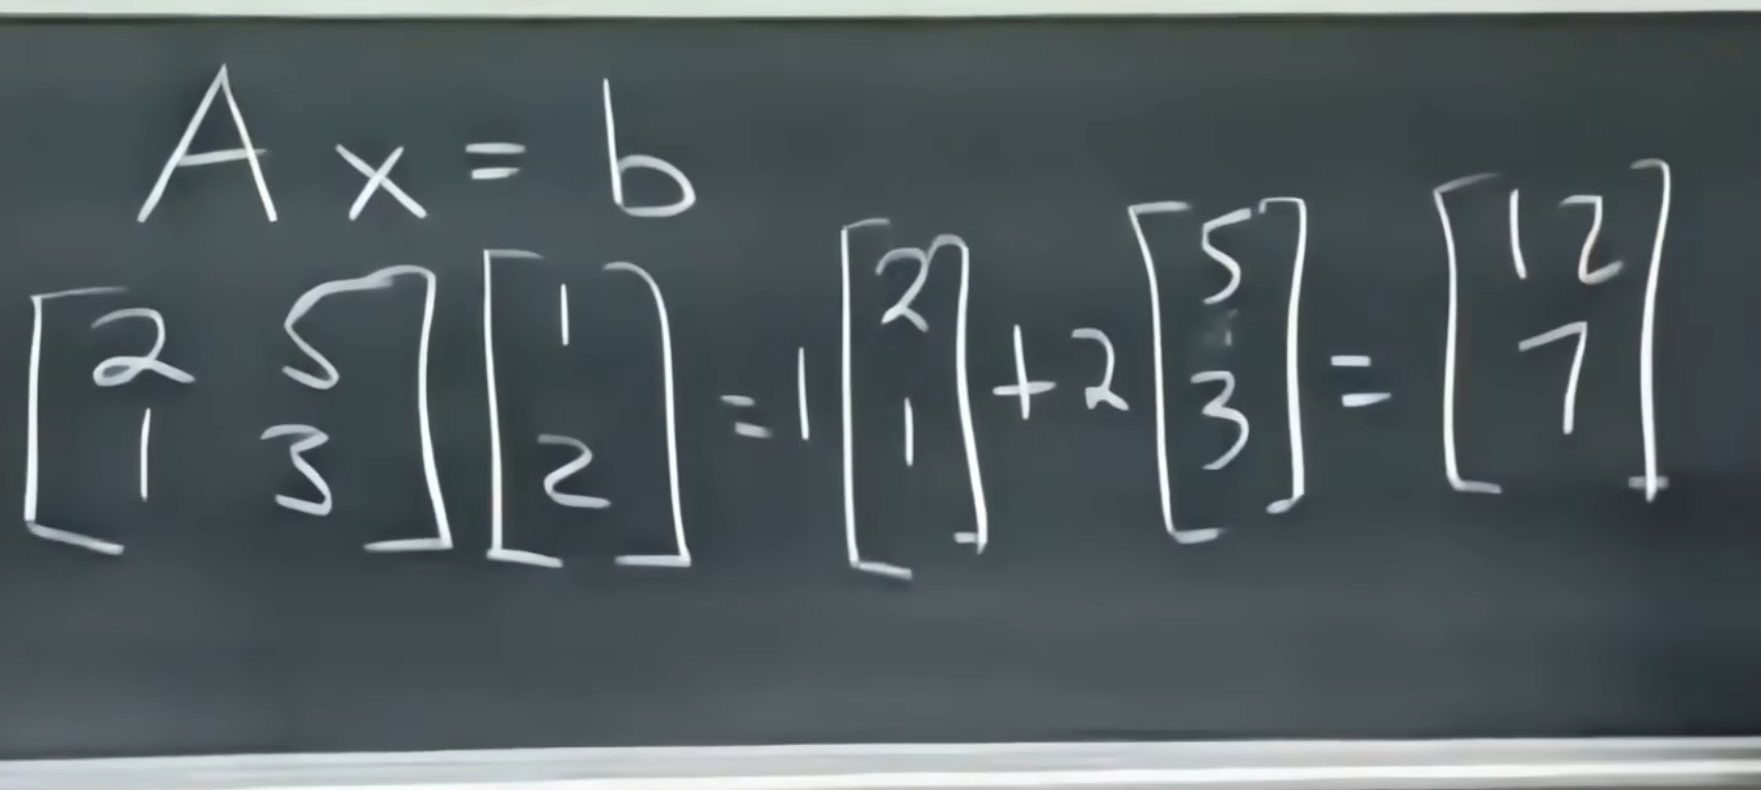 A x = b
[2 5; 1 3] [1; 2] = 1 [2; 1] + 2 [5; 3] = [12; 7]